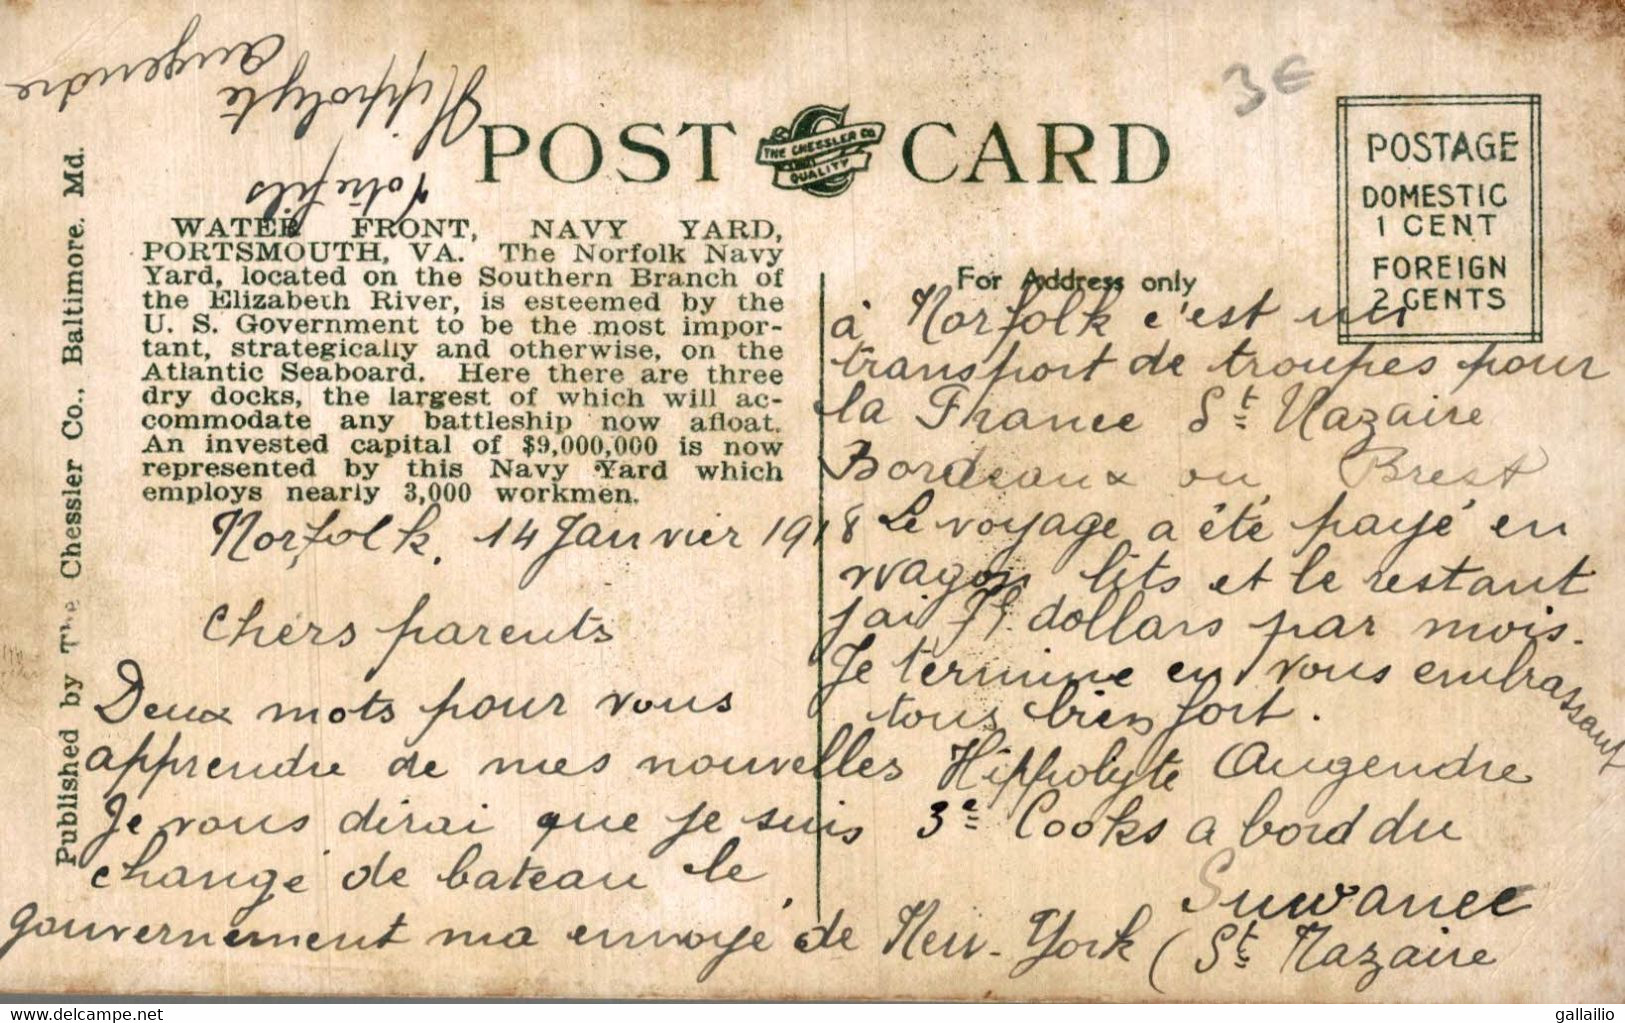 Hippolyte
Augendre
Votre fils
3€
POST CARD
THE CHESSLER CO.
QUALITY
POSTAGE
DOMESTIC
1 CENT
FOREIGN
2 CENTS
Published by The Chessler Co., Baltimore. Md.
WATER FRONT, NAVY YARD,
PORTSMOUTH, VA. The Norfolk Navy
Yard, located on the Southern Branch of
the Elizabeth River, is esteemed by the
U. S. Government to be the most impor-
tant, strategically and otherwise, on the
Atlantic Seaboard. Here there are three
dry docks, the largest of which will ac-
commodate any battleship now afloat.
An invested capital of $9,000,000 is now
represented by this Navy Yard which
employs nearly 3,000 workmen.
Norfolk, 14 Janvier 1918
Chers parents
Deux mots pour vous
apprendre de mes nouvelles
Je vous dirai que je suis
changé de bateau le
gouvernement ma envoyé de New-York
For Address only
à Norfolk c'est un
transport de troupes pour
la France St Nazaire
Bordeaux ou Brest
Le voyage a été payé en
wagon lits et le restant
jai dollars par mois.
Je termine en vous embrassant
tous bien fort.
Hippolyte Augendre
3e Cooks a bord du
Suwanee
(St Nazaire
delcampe.net
gallailio